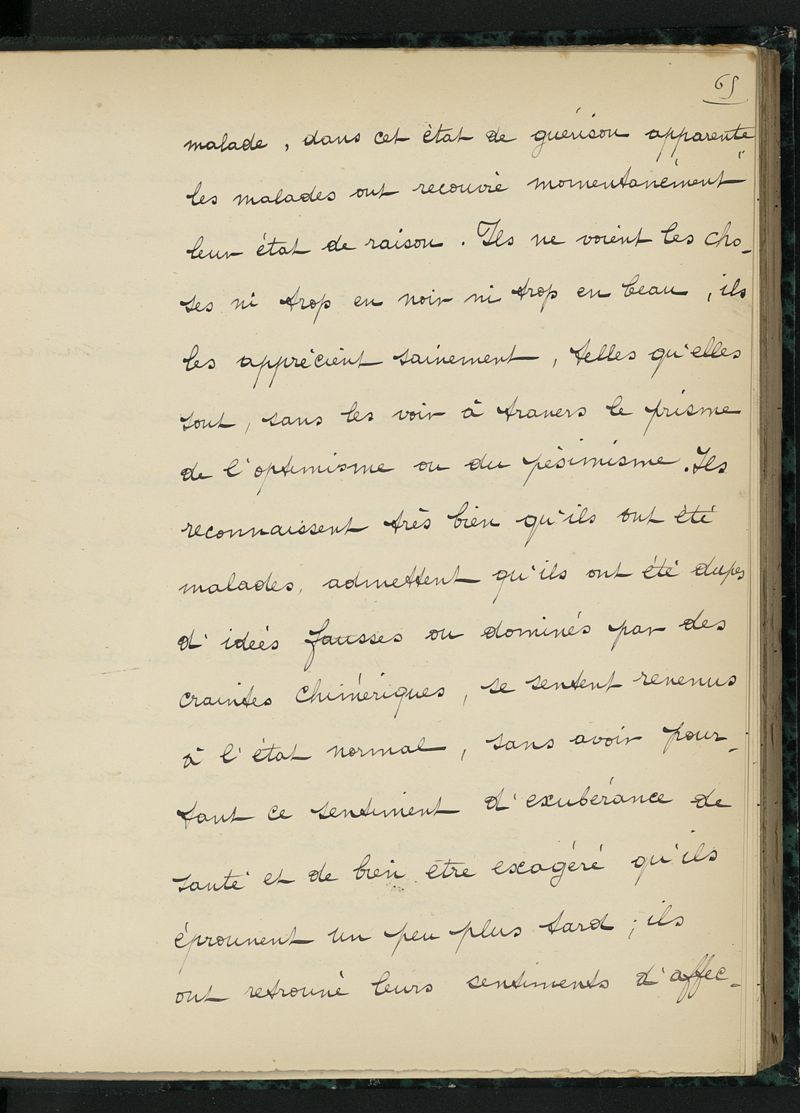 65
malade, dans cet état de guérison apparente
les malades ont recouvré momentanément"
leur état de raison. Ils ne voient les cho-
ses ni trop en noir ni trop en beau, ils
les apprécient sainement, telles qu'elles
sont, sans les voir à travers le prisme
de l'optimisme ou du pèsimisme. Ils
reconnaissent très bien qu'ils ont été
malades, admettent qu'ils ont été dupes
d'ideés fausses ou dominés par des
craintes chimériques, se sentent revenus
à l'état normal, sans avoir pour-
tant ce sentiment d'exubérance de
santé et de bien être exagéré qu'ils
éprouvent un peu plus tard ; ils
ont retrouvé leurs sentiments d'affec-